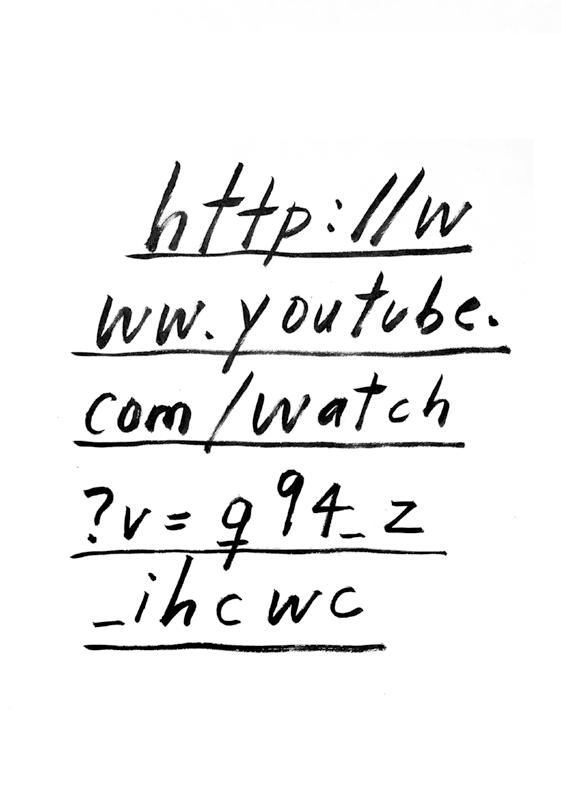 http://w
ww.youtube.
com/watch
?v=q94_z
_ihcwc